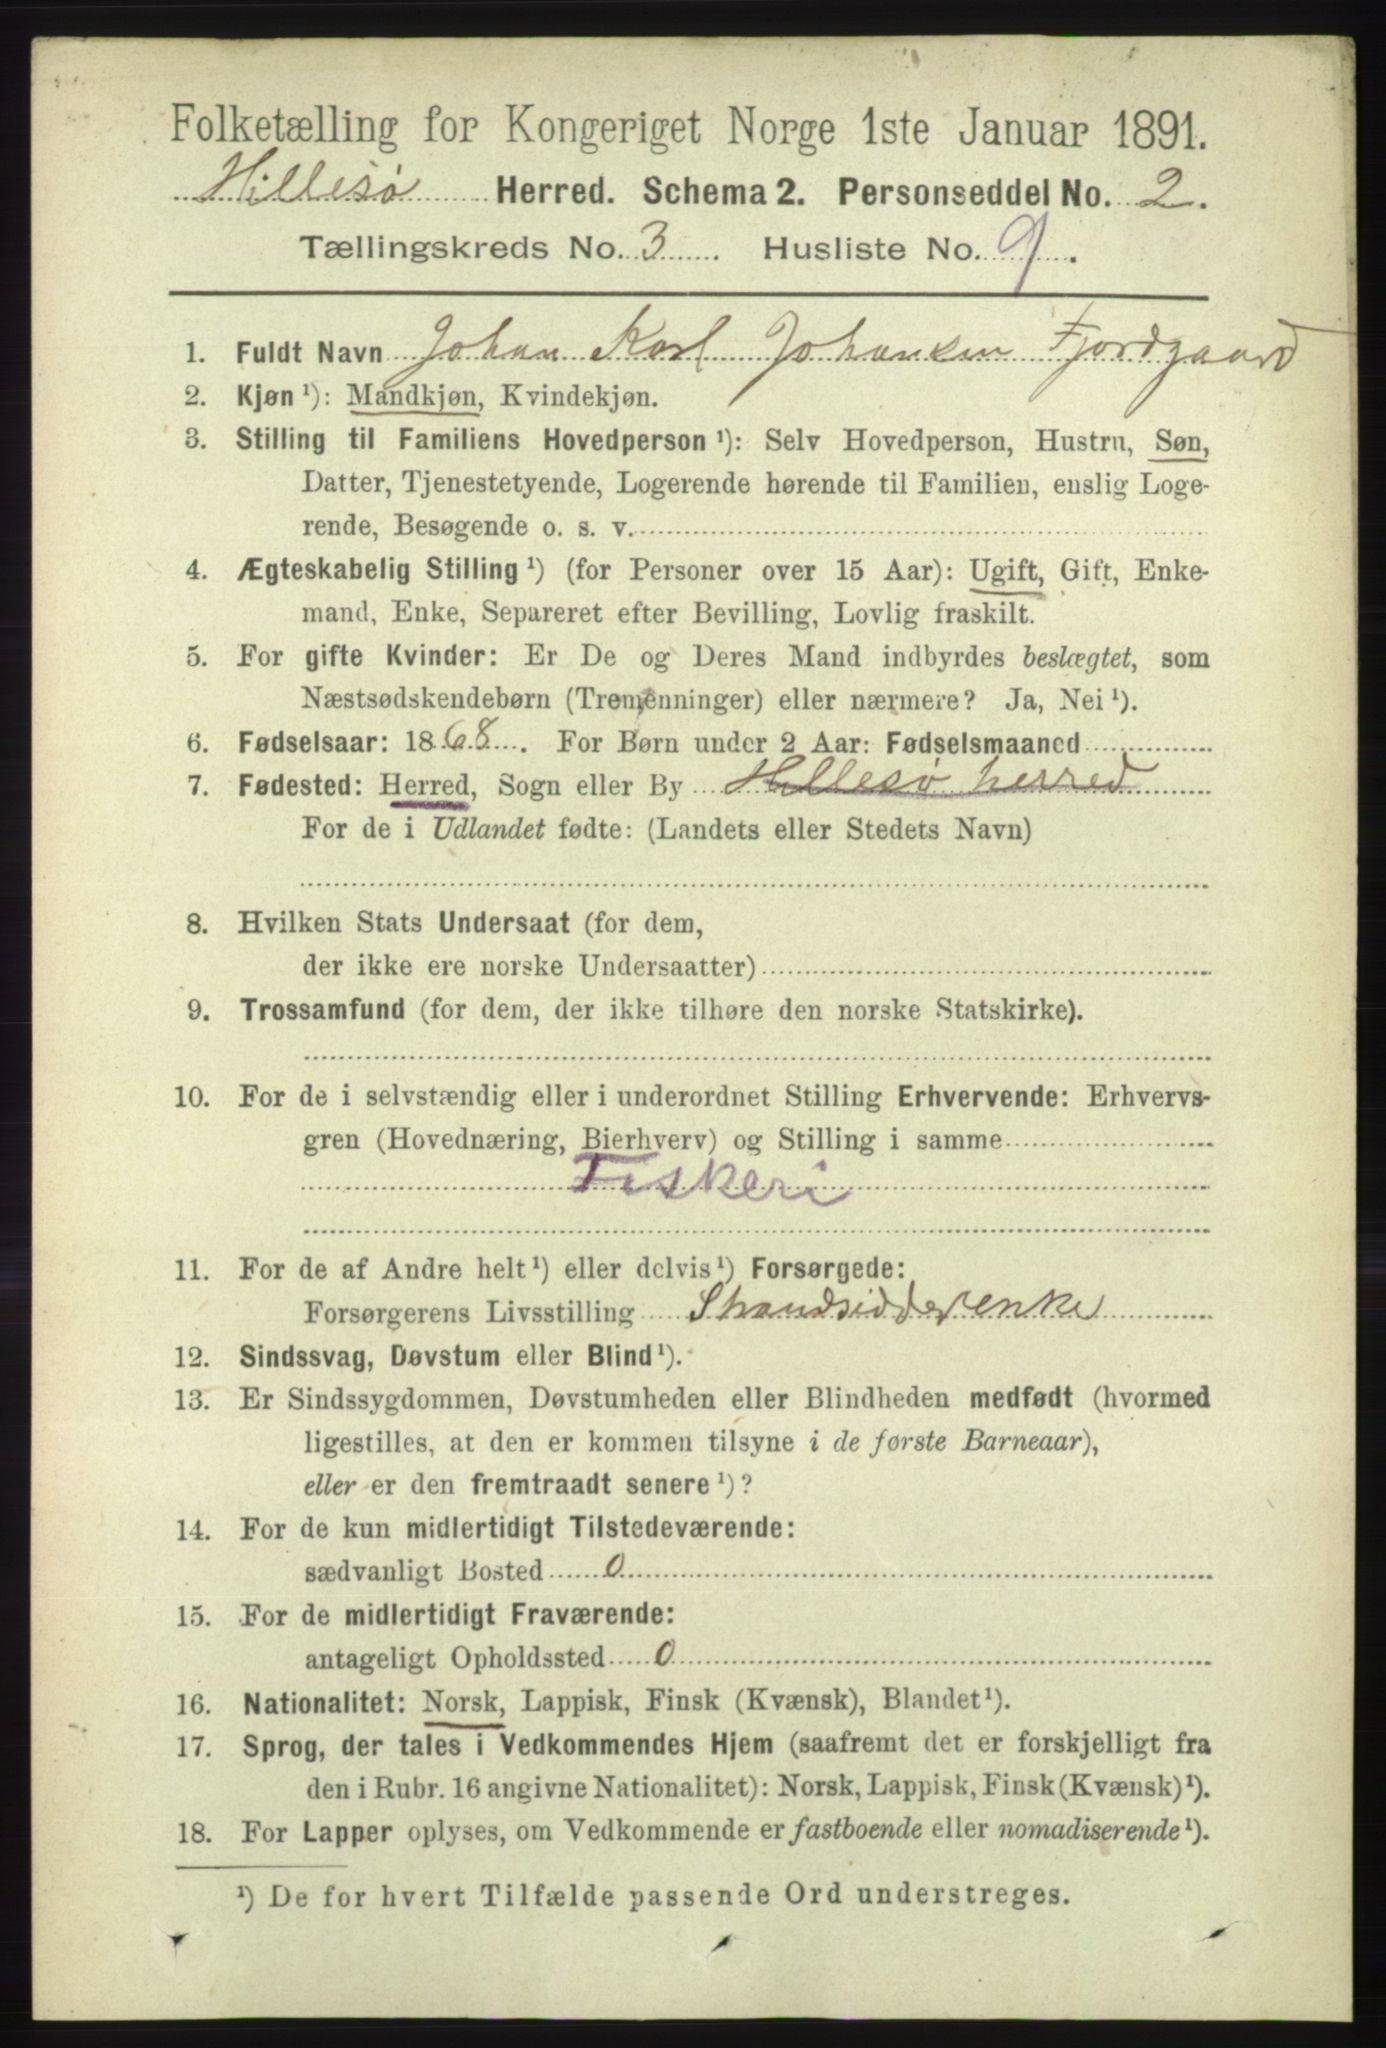 Folketælling for Kongeriget Norge 1ste Januar 1891.
Hillesø Herred. Schema 2. Personseddel No. 2.
Tællingskreds No. 3. Husliste No. 9.
1. Fuldt Navn Johan Karl Johansen Fjordgaard
2. Kjøn ¹): Mandkjøn, Kvindekjøn.
3. Stilling til Familiens Hovedperson ¹): Selv Hovedperson, Hustru, Søn,
Datter, Tjenestetyende, Logerende hørende til Familien, enslig Loge-
rende, Besøgende o. s. v.
4. Ægteskabelig Stilling ¹) (for Personer over 15 Aar): Ugift, Gift, Enke-
mand, Enke, Separeret efter Bevilling, Lovlig fraskilt.
5. For gifte Kvinder: Er De og Deres Mand indbyrdes beslægtet, som
Næstsødskendebørn (Tremenninger) eller nærmere? Ja, Nei ¹).
6. Fødselsaar: 1868. For Børn under 2 Aar: Fødselsmaaned
7. Fødested: Herred, Sogn eller By Hillesø herred
For de i Udlandet fødte: (Landets eller Stedets Navn)
8. Hvilken Stats Undersaat (for dem,
der ikke ere norske Undersaatter)
9. Trossamfund (for dem, der ikke tilhøre den norske Statskirke).
10. For de i selvstændig eller i underordnet Stilling Erhvervende: Erhvervs-
gren (Hovednæring, Bierhverv) og Stilling i samme
Fiskeri
11. For de af Andre helt ¹) eller delvis ¹) Forsørgede:
Forsørgerens Livsstilling Strandsidderenke
12. Sindssvag, Døvstum eller Blind ¹).
13. Er Sindssygdommen, Døvstumheden eller Blindheden medfødt (hvormed
ligestilles, at den er kommen tilsyne i de første Barneaar),
eller er den fremtraadt senere ¹)?
14. For de kun midlertidigt Tilstedeværende:
sædvanligt Bosted 0
15. For de midlertidigt Fraværende:
antageligt Opholdssted 0
16. Nationalitet: Norsk, Lappisk, Finsk (Kvænsk), Blandet ¹).
17. Sprog, der tales i Vedkommendes Hjem (saafremt det er forskjelligt fra
den i Rubr. 16 angivne Nationalitet): Norsk, Lappisk, Finsk (Kvænsk) ¹).
18. For Lapper oplyses, om Vedkommende er fastboende eller nomadiserende ¹).
¹) De for hvert Tilfælde passende Ord understreges.